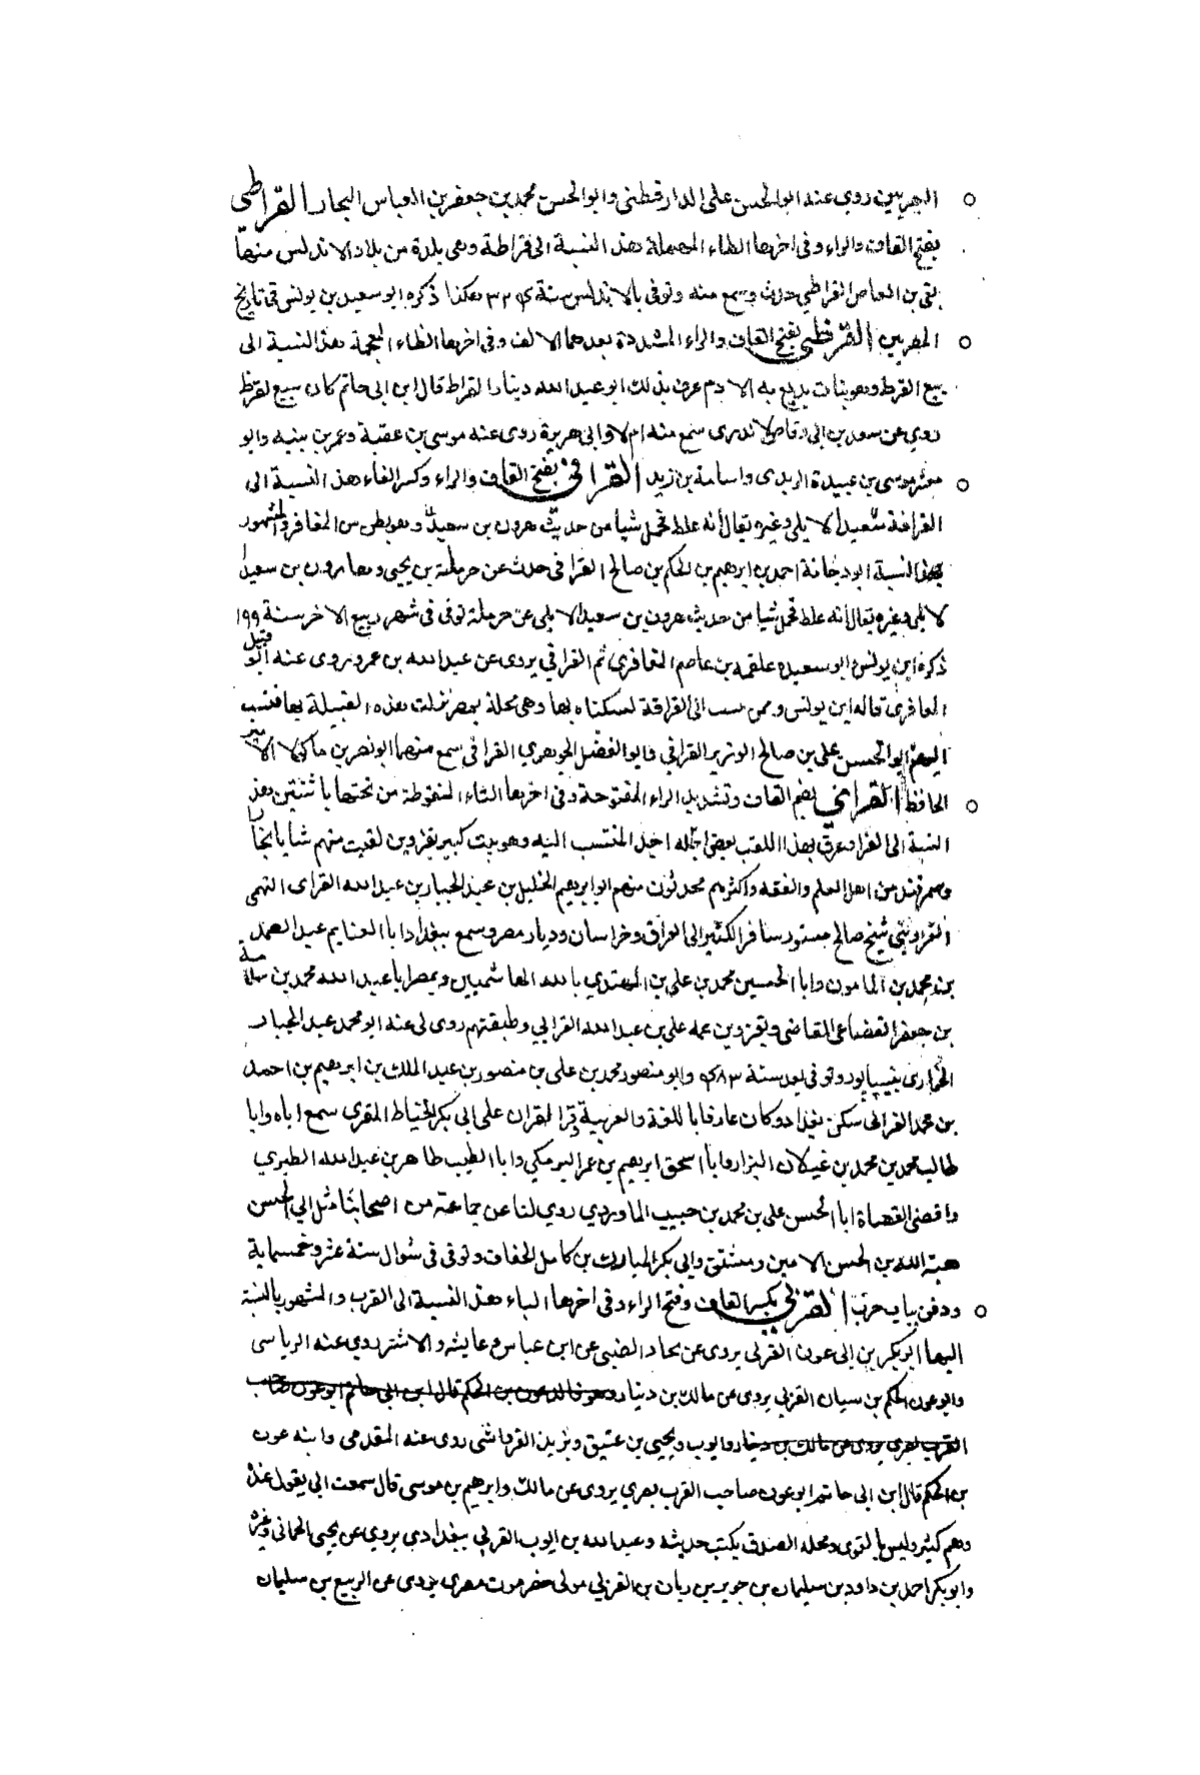 البحرين روي عنه ابو الحسن علي الدارقطني وابو الحسن محمد بن جعفر بن العباس النجار القراطي
بفتح القاف والراء وفي اخرها الطاء المهملة هذه النسبة الى قراطة وهي بلدة من بلاد الاندلس منها
بقي بن العاص القراطي حدث وسمع منه وتوفي بالاندلس سنة ٣٢٤ هكذا ذكره ابو سعيد بن يونس في تاريخ
المصريين القرظي بفتح القاف والراء المشددة بعدهما الالف وفي اخرها الظاء المعجمة هذه النسبة الى
بيع القرظ وهو نبات يدبغ به الادم عرف بذلك ابو عبد الله دينار القراظ قال ابن ابي حاتم كان يبيع القرظ
روي عن سعد بن ابي وقاص لا ندري سمع منه ام لا وابي هريرة روى عنه موسى بن عقبة وعمر بن نبيه وابو
معشر موسى بن عبيدة الربدى واسامة بن زيد القرافي بفتح القاف والراء وكسر الفاء هذه النسبة الى
القرافة سعيد الايلي وغيره يقال انه غلط فحمل شيا من حديث هرون بن سعيد وهو بطن من المعافر والمشهور
بهذه النسبة ابو دجانة احمد بن ابرهيم بن الحكم بن صالح القرافي حدث عن حرملة بن يحيى وهارون بن سعيد
الايلي وغيره يقال انه غلط فحمل شيا من حديث هرون بن سعيد الايلي عن حرملة توفي في شهر ربيع الاخر سنة ١٩٩
ذكره ابن يونس وابو سعيد علقمة بن عاصم المعافري ثم القرافي يروي عن عبد الله بن عمرو روى عنه ابو قبيل
المعافري قاله ابن يونس وممن نسب الى القرافة لسكناه بها وهي محلة بمصر نزلت هذه القبيلة بها فنسب
اليهم ابو الحسن علي بن صالح الوزير القرافي وابو الفضل الجوهري القرافي سمع منهما ابو نصر بن ماكولا الامير
الحافظ القرايي بضم القاف وتشديد الراء المفتوحة وفي اخرها التاء المنقوطة من تحتها باثنتين هذه
النسبة الى القرا وعرف بهذا اللقب بعض اجداد المنتسب اليه وهو بيت كبير بقزوين لقيت منهم شابا ببخارا
وسمرقند من اهل العلم والفقه واكثرهم محدثون منهم ابو ابرهيم الخليل بن عبد الجبار بن عبد الله القرای التيمي
القزويني شيخ صالح مستور سافر الكثير الى العراق وخراسان وديار مصر وسمع ببغداد ابا الغنايم عبد الصمد
بن محمد بن المامون وابا الحسين محمد بن علي بن المهتدي بالله الهاشميين وبمصر ابا عبد الله محمد بن سلامة
بن جعفر القضاعي القاضي وبقزوين عمه علي بن عبد الله القرايي وطبقتهم روى لي عنه ابو محمد عبد الجبار
الخواري بنيسابور وتوفي بعد سنة ٤٨٣ وابو منصور محمد بن علي بن منصور بن عبد الملك بن ابرهيم بن احمد
بن محمد القرائي سكن بغداد وكان عارفا باللغة والعربية قرا القران على ابي بكر الخياط المقري سمع اباه وابا
طالب محمد بن محمد بن غيلان البزاز وابا اسحق ابرهيم بن عمر البرمكي وابا الطيب طاهر بن عبد الله الطبري
واقضى القضاة ابا الحسن علي بن محمد بن حبيب الماوردي روى لنا عن جماعة من اصحابنا مثل ابي الحسن
هبة الله بن الحسن الامين بدمشق وابي بكر المبارك بن كامل الخفاف وتوفي في شوال سنة عشر وخمسماية
ودفن بباب حرب القربي بكسر القاف وفتح الراء وفي اخرها الباء هذه النسبة الى القرب والمشهور بالنسبة
اليها ابو بكر بن ابي عون القربي يروي عن بجاد الضبي عن ابن عباس وعايشة والاشتر روي عنه الرياسي
وابو عون الحكم بن سيان القربي يروي عن مالك بن دينار وهو خالد عون بن الحكم قال ابن ابي حاتم ابو عون صاحب
القرب بصري يروى عن مالك بن دينار وايوب ويحيى بن عتيق ويزيد القرقاشي روى عنه المقدمي وابنه عون
بن الحكم قال ابن ابي حاتم ابو عون صاحب القرب بصري يروي عن مالك وابرهيم بن موسى قال سمعت ابي يقول عنده
وهم كثير وليس بالقوى ومحله الصدق يكتب حديثه وعبد الله بن ايوب القربي ببغدادي يروي عن يحيى الحماني وغيره
وابو بكر احمد بن داود بن سليمان بن جوير بن ريان بن القربي مولى حضرموت مصري يروي عن الربيع بن سليمان